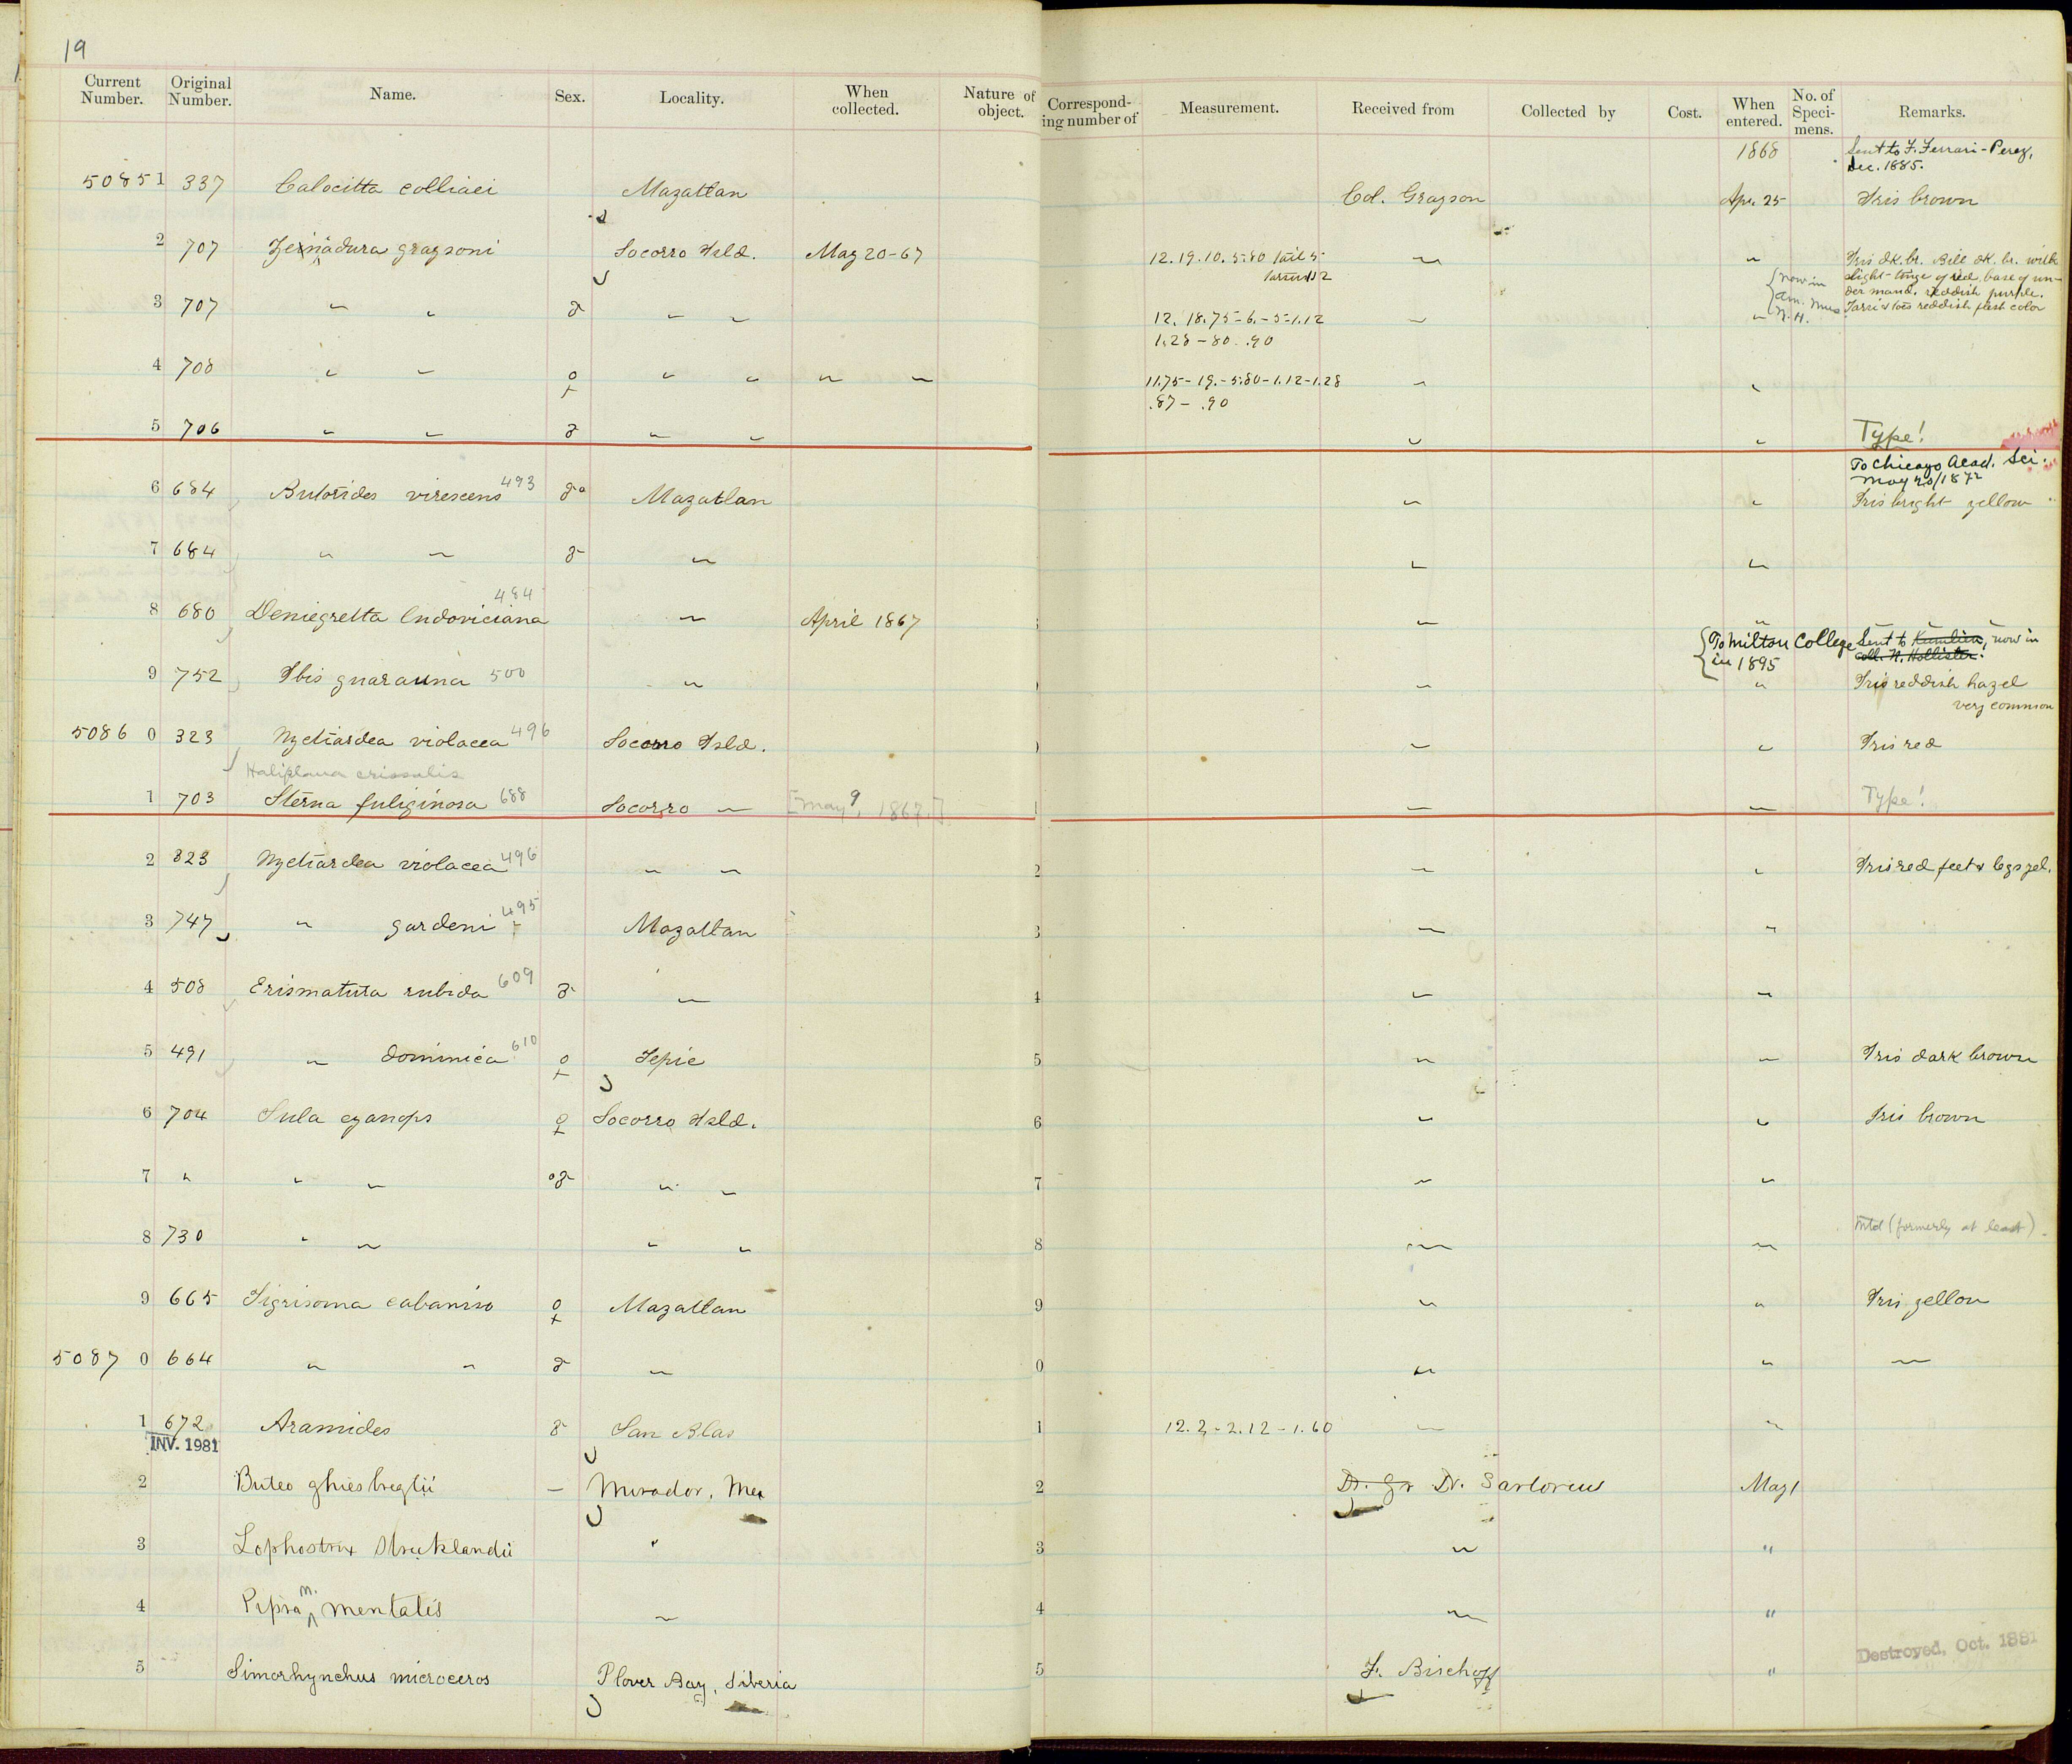 19
Current Number. Original Number. Name. Sex. Locality. When collected. Nature of object. Corresponding number of Measurement. Received from Collected by Cost. When entered. No. of Specimens. Remarks.
1868 Sent to F. Ferrari-Perez,
Dec. 1885.
50851 337 Calocitta colliaei Mazatlan Col. Grayson Apr. 25 Iris brown
2 707 Zenadura graysoni Socorro Isld. May 20-67 12.19.10.5.80 tail 5 " " Iris dk. br. Bill dk. br. with
tarsus 12 slight tinge of red, base of un-
{now in der mand. reddish purple.
Am. Mus. Tarsi & toes reddish flesh color
N. H.
3 707 " " ♂ " " 12. 18.75-6.-5-1.12 " "
1.28-80. .90
4 708 " " ♀ " " " " 11.75-19.-5.80-1.12-1.28 " "
.87- .90
5 706 " " ♂ " " " " Type!
To Chicago Acad. Sci.
May 20/1872
6 684 Butorides virescens 493 ♂ Mazatlan " " Iris bright yellow
7 684 " " ♂ " " "
484
8 680 Demiegretta ludoviciana " April 1867 " " " " "
{To Milton College Sent to Kumlien, now in
in 1895 coll. N. Hollister.
9 752 Ibis guarauna 500 " " " Iris reddish hazel
very common
5086 0 323 Nyctiardea violacea 496 Socorro Isld. " " Iris red
Haliplana crissalis
1 703 Sterna fuliginosa 688 Socorro " [May 9, 1867.] " " Type!
2 323 Nyctiardea violacea 496 " " " " Iris red feet & legs yel.
3 747 " gardeni 495 Mazatlan " "
4 508 Erismatura rubida 609 ♂ " " "
5 491 " dominica 610 ♀ Tepic " " Iris dark brown
6 704 Sula cyanops ♀ Socorro Isld. " " Iris brown
7 " " " ♂ " " " "
8 730 " " " " " " Mtd (formerly at least)
9 665 Tigrisoma cabanisi ♀ Mazatlan " " Iris yellow
5087 0 664 " " ♂ " " " "
1 672 Aramides ♂ San Blas 12.2-2.12-1.60 " "
INV. 1981
2 Buteo ghiesbreglii - Mirador, Mex Dr. Gr Dr. Sartorius May 1
3 Lophostrix Stricklandii " " "
4 Pipra m. mentalis " " "
Destroyed, Oct. 1881
5 Simorhynchus microceros Plover Bay, Siberia F. Bischoff "